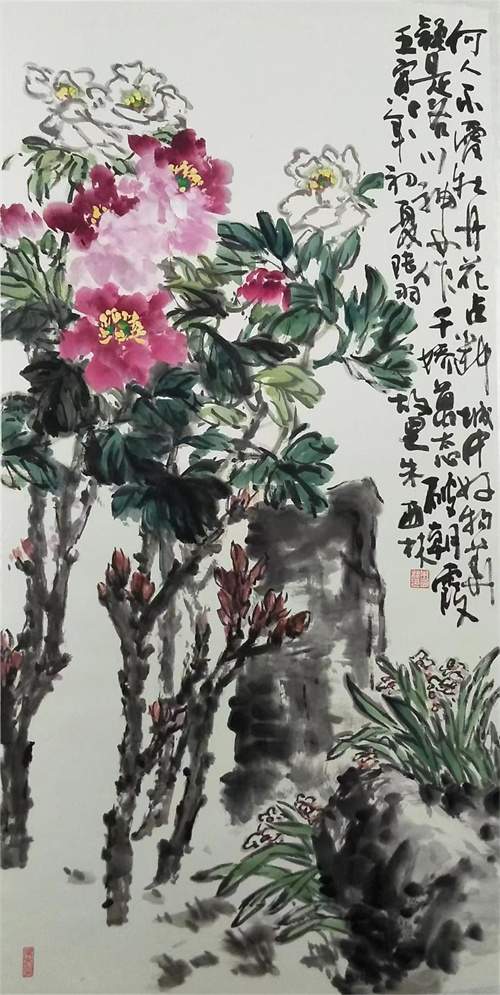 何人不愛牡丹花占断城中好物華
疑是洛川神女作千嬌萬态破朝霞
壬寅年初夏陆羽故里朱西林